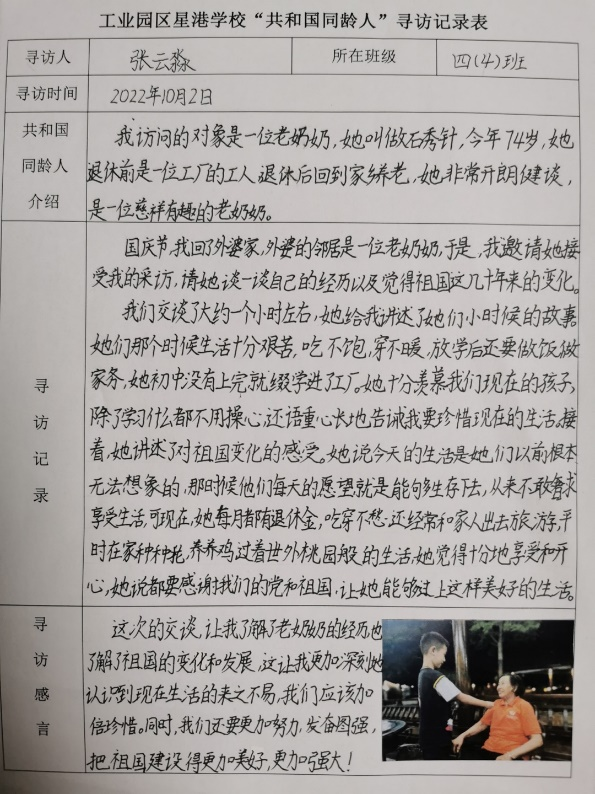 工业园区星港学校“共和国同龄人”寻访记录表
寻访人 张云淼 所在班级 四(4)班
寻访时间 2022年10月2日
共和国同龄人介绍
我访问的对象是一位老奶奶,她叫做石秀针,今年74岁,她
退休前是一位工厂的工人退休后回到家乡养老,她非常开朗健谈,
是一位慈祥有趣的老奶奶。
寻访记录
国庆节,我回了外婆家,外婆的邻居是一位老奶奶,于是,我邀请她接
受我的采访,请她谈一谈自己的经历以及觉得祖国这几十年来的变化。
我们交谈了大约一个小时左右,她给我讲述了她们小时候的故事
她们那个时候生活十分艰苦,吃不饱,穿不暖,放学后还要做饭做
家务,她初中没有上完就缀学进了工厂。她十分羡慕我们现在的孩子,
除了学习什么都不用操心,还语重心长地告诫我要珍惜现在的生活。接
着,她讲述了对祖国变化的感受。她说今天的生活是她们以前根本
无法想象的,那时候他们每天的愿望就是能够生存下去,从来不敢奢求
享受生活,可现在,她每月都有退休金,吃穿不愁,还经常和家人出去旅游,平
时在家种种花,养养鸡过着世外桃园般的生活,她觉得十分地享受和开
心,她说都要感谢我们的党和祖国,让她能够过上这样美好的生活。
寻访感言
这次的交谈,让我了解了老奶奶的经历,也
了解了祖国的变化和发展,这让我更加深刻地
认识到现在生活的来之不易,我们应该加
倍珍惜。同时,我们还要更加努力,发奋图强,
把祖国建设得更加美好,更加强大!